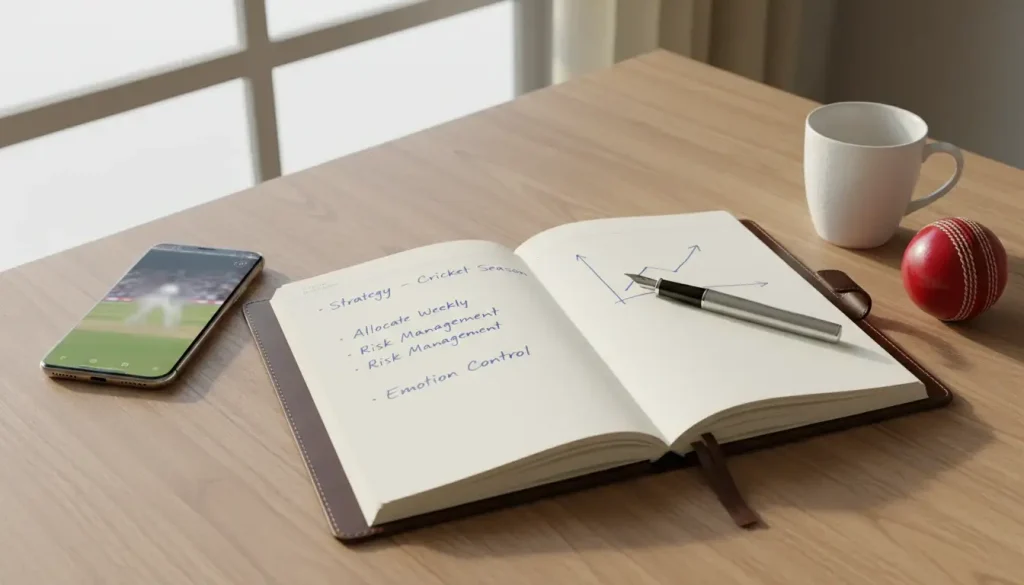 · Strategy – Cricket Season
· Allocate Weekly
· Risk Management
· Risk Management
· Emotion Control